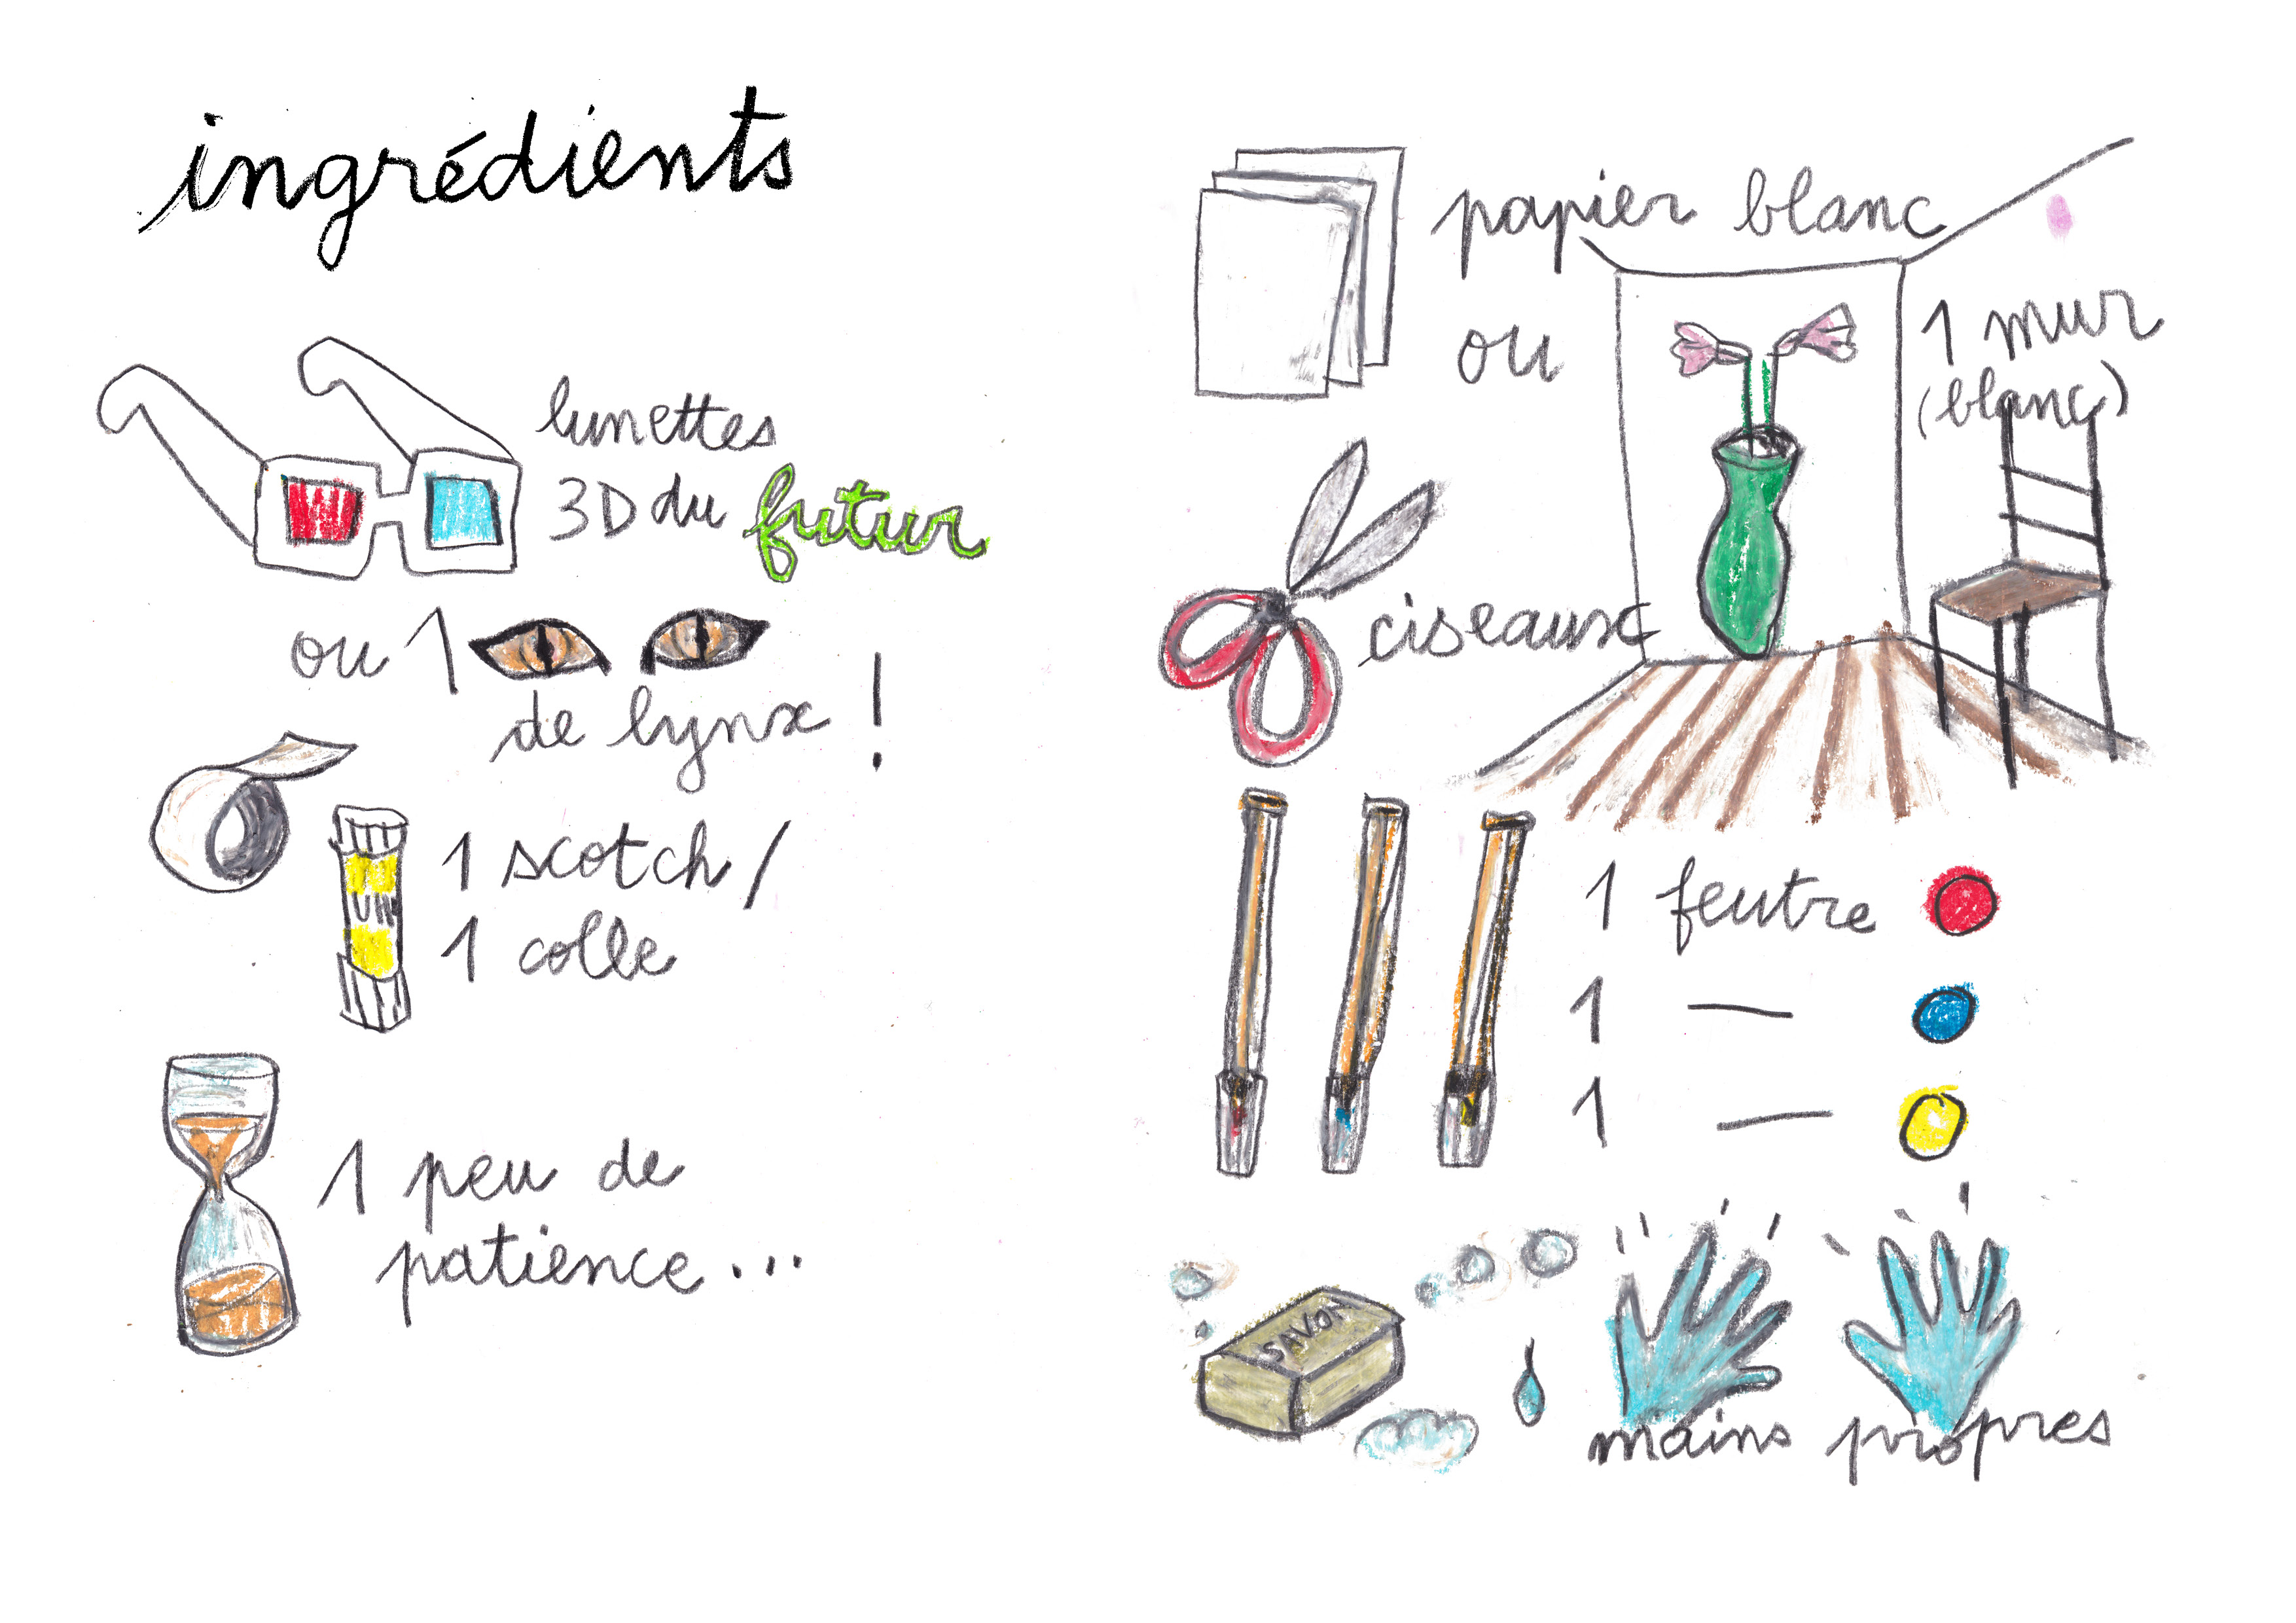 ingrédients
lunettes
3D du futur
ou 1
de lynx !
1 scotch /
1 colle
UHU
1 peu de
patience...
papier blanc
ou
1 mur
(blanc)
ciseaux
1 feutre
1 —
1 —
SAVON
mains propres